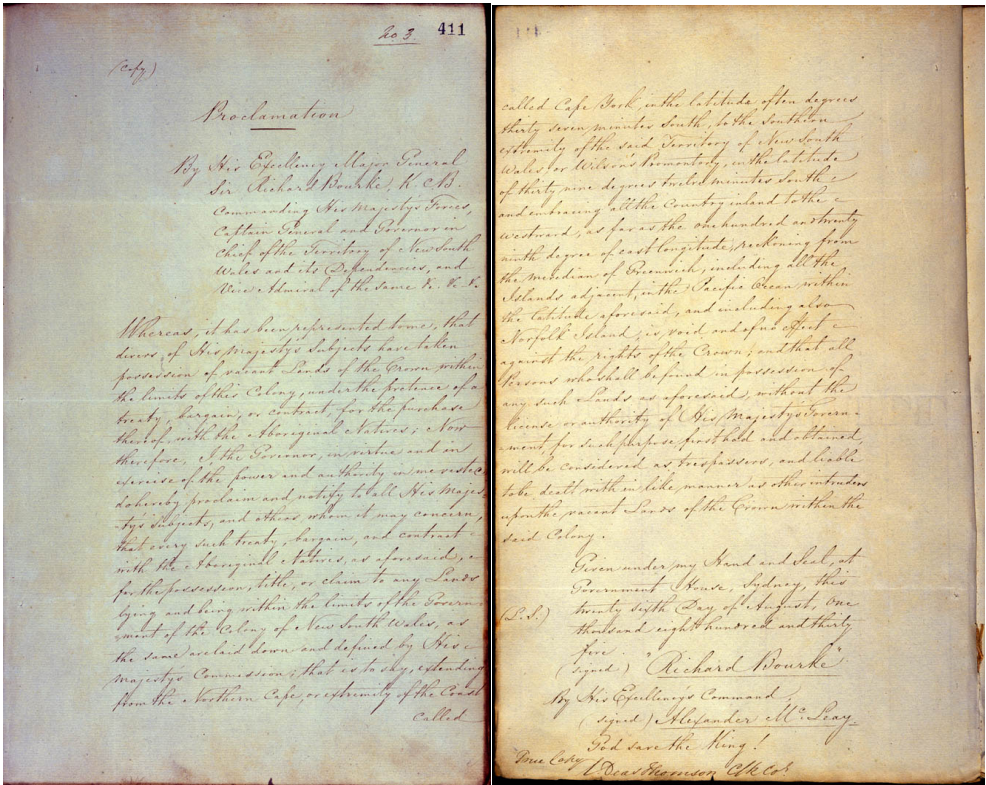 No 3 411
(Copy)
Proclamation
By His Excellency Major General
Sir Richard Bourke, K. C.B.
Commanding His Majesty's Forces,
Captain General and Governor in
Chief of the Territory of New South
Wales and its Dependencies, and
Vice Admiral of the same &c. &c. &c.
Whereas, it has been represented to me, that
divers of His Majesty's Subjects have taken
possession of vacant Lands of the Crown within
the limits of this Colony, under the pretence of a
treaty, bargain, or contract, for the purchase
thereof, with the Aboriginal Natives; Now
therefore, I the Governor, in virtue and in
exercise of the power and authority in me vested
do hereby proclaim and notify to all His Majes-
-ty's Subjects, and others whom it may concern,
that every such treaty, bargain, and contract
with the Aboriginal Natives, as aforesaid,
for the possession, title, or claim to any Lands
lying and being within the limits of the Govern-
-ment of the Colony of New South Wales, as
the same are laid down and defined by His
Majesty's Commission; that is to say, extending
from the Northern Cape, or extremity of the Coast
called
called Cape York, in the latitude of ten degrees
thirty seven minutes South, to the Southern
extremity of the said Territory of New South
Wales, or Wilson's Promontory, in the latitude
of thirty nine degrees twelve minutes South
and embracing all the Country inland to the
westward, as far as the one hundred and twenty
ninth degree of east longitude, reckoning from
the meridian of Greenwich, including all the
Islands adjacent, in the Pacific Ocean within
the latitude aforesaid, and including also
Norfolk Island, is void and of no effect
against the rights of the Crown; and that all
Persons who shall be found in possession of
any such Lands as aforesaid, without the
license or authority of His Majesty's Govern-
-ment, for such purpose first had and obtained,
will be considered as trespassers, and liable
to be dealt with in like manner as other intruders
upon the vacant Lands of the Crown within the
said Colony.
Given under my Hand and Seal, at
Government House, Sydney, this
(L.S.) twenty sixth Day of August, One
thousand eight hundred and thirty
five.
(signed) "Richard Bourke"
By His Excellency's Command,
(signed) Alexander McLeay
God save the King!
True Copy
E Deas Thomson Clk Col